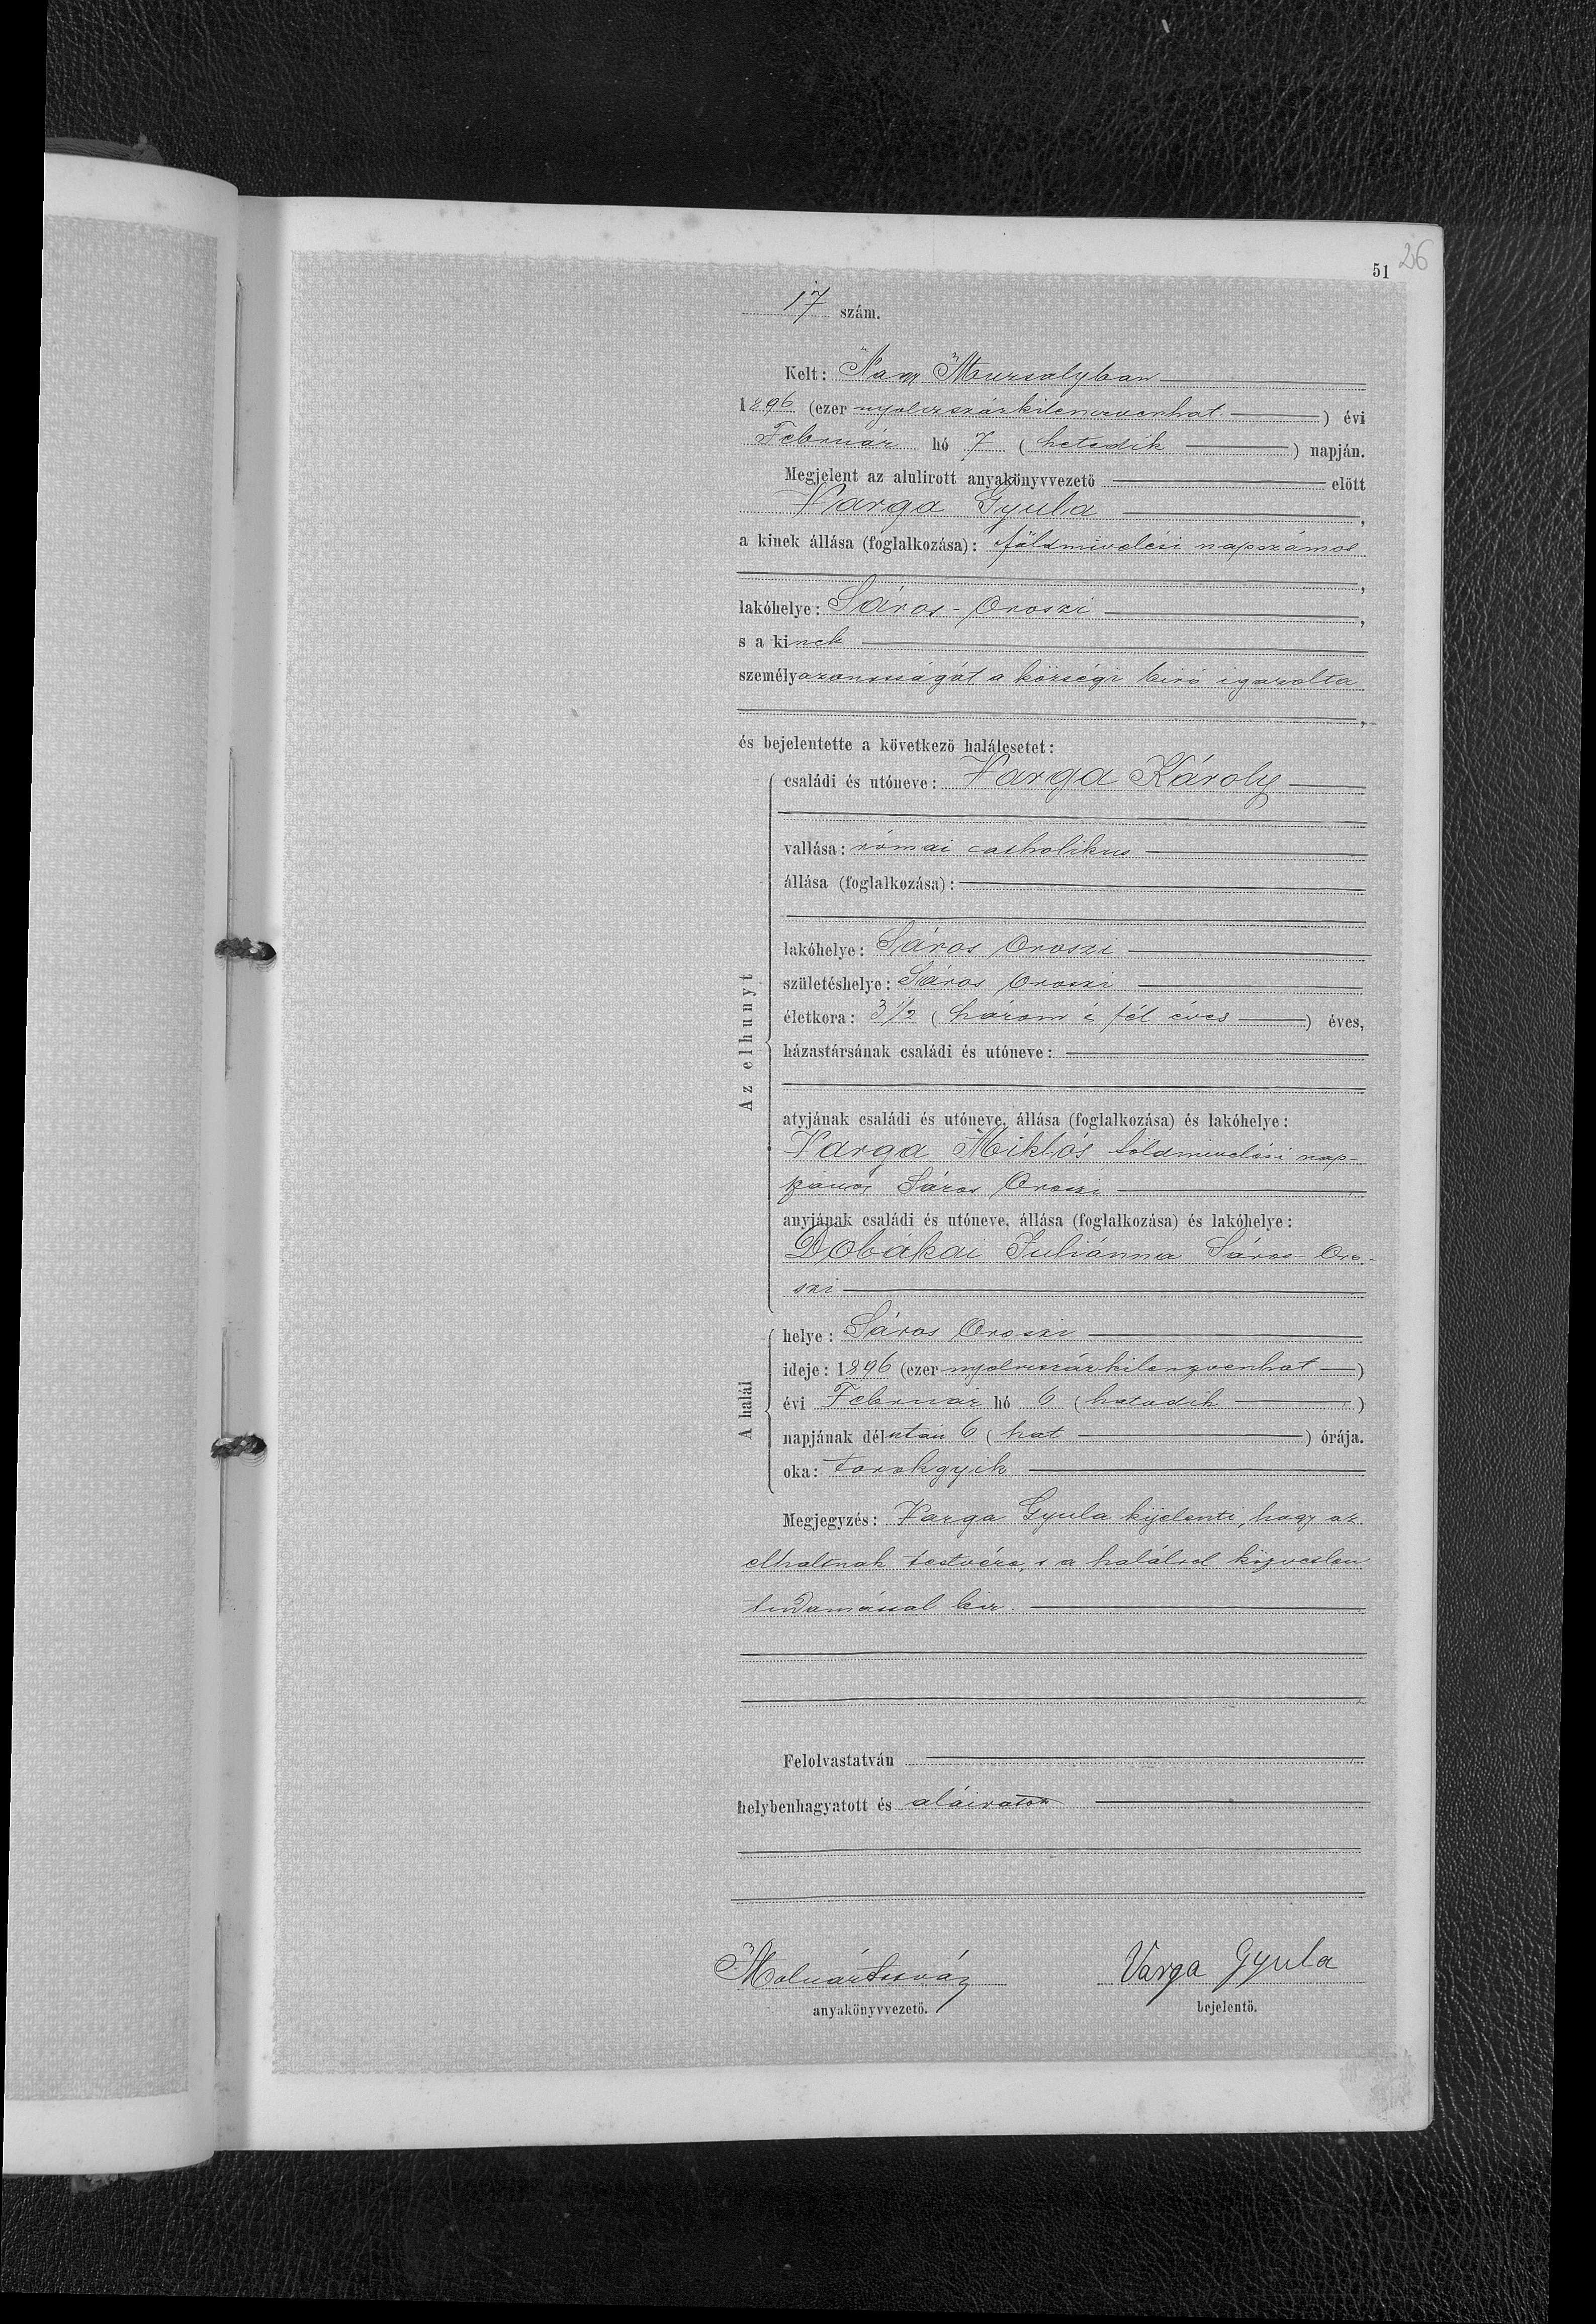 26
51
17 szám.
Kelt: Nagy Muzsalyban
1896 (ezer nyolczszázkilenczvenhat) évi
Február hó 7 (hetedik) napján.
Megjelent az alulirott anyakönyvvezető előtt
Varga Gyula,
a kinek állása (foglalkozása): földmivelési napszámos
,
lakóhelye: Sáros-Oroszi,
s a kinek
személyazonosságát a községi biró igazolta
,
és bejelentette a következő halálesetet:
Az elhunyt
családi és utóneve: Varga Károly
vallása: római catholikus
állása (foglalkozása):
lakóhelye: Sáros Oroszi
születéshelye: Sáros Oroszi
életkora: 3 1/2 (három é fél éves) éves,
házastársának családi és utóneve:
atyjának családi és utóneve, állása (foglalkozása) és lakóhelye:
Varga Miklós földmivelési nap-
Sáros Oroszi
anyjának családi és utóneve, állása (foglalkozása) és lakóhelye:
Dobákai Juliánna Sáros-Oro-
szi
A halál
helye: Sáros Oroszi
ideje: 1896 (ezer nyolczszázkilenczvenhat)
évi Február hó 6 (hatodik)
napjának délután 6 (hat) órája.
oka: torokgyik
Megjegyzés: Varga Gyula kijelenti, hogy az
elhaltnak testvére, s a halálról közvetlen
tudomással bir.
Felolvastatván
helybenhagyatott és aláiratott
Molnár István Varga Gyula
anyakönyvvezető. bejelentő.